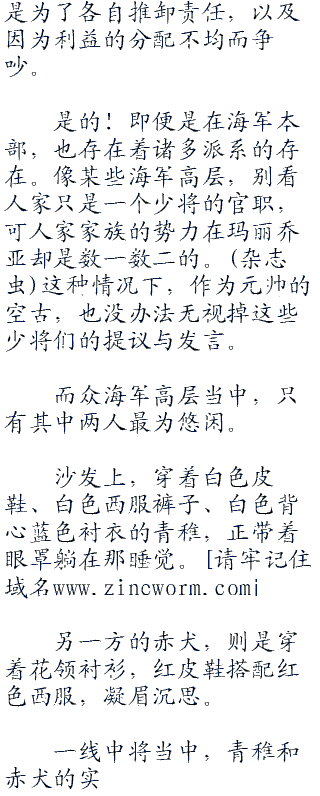 是为了各自推卸责任，以及
因为利益的分配不均而争
吵。
是的！即便是在海军本
部，也存在着诸多派系的存
在。像某些海军高层，别看
人家只是一个少将的官职，
可人家家族的势力在玛丽乔
亚却是数一数二的。(杂志
虫)这种情况下，作为元帅的
空古，也没办法无视掉这些
少将们的提议与发言。
而众海军高层当中，只
有其中两人最为悠闲。
沙发上，穿着白色皮
鞋、白色西服裤子、白色背
心蓝色衬衣的青稚，正带着
眼罩躺在那睡觉。[请牢记住
域名www.zincworm.com|
另一方的赤犬，则是穿
着花领衬衫，红皮鞋搭配红
色西服，凝眉沉思。
一线中将当中，青稚和
赤犬的实